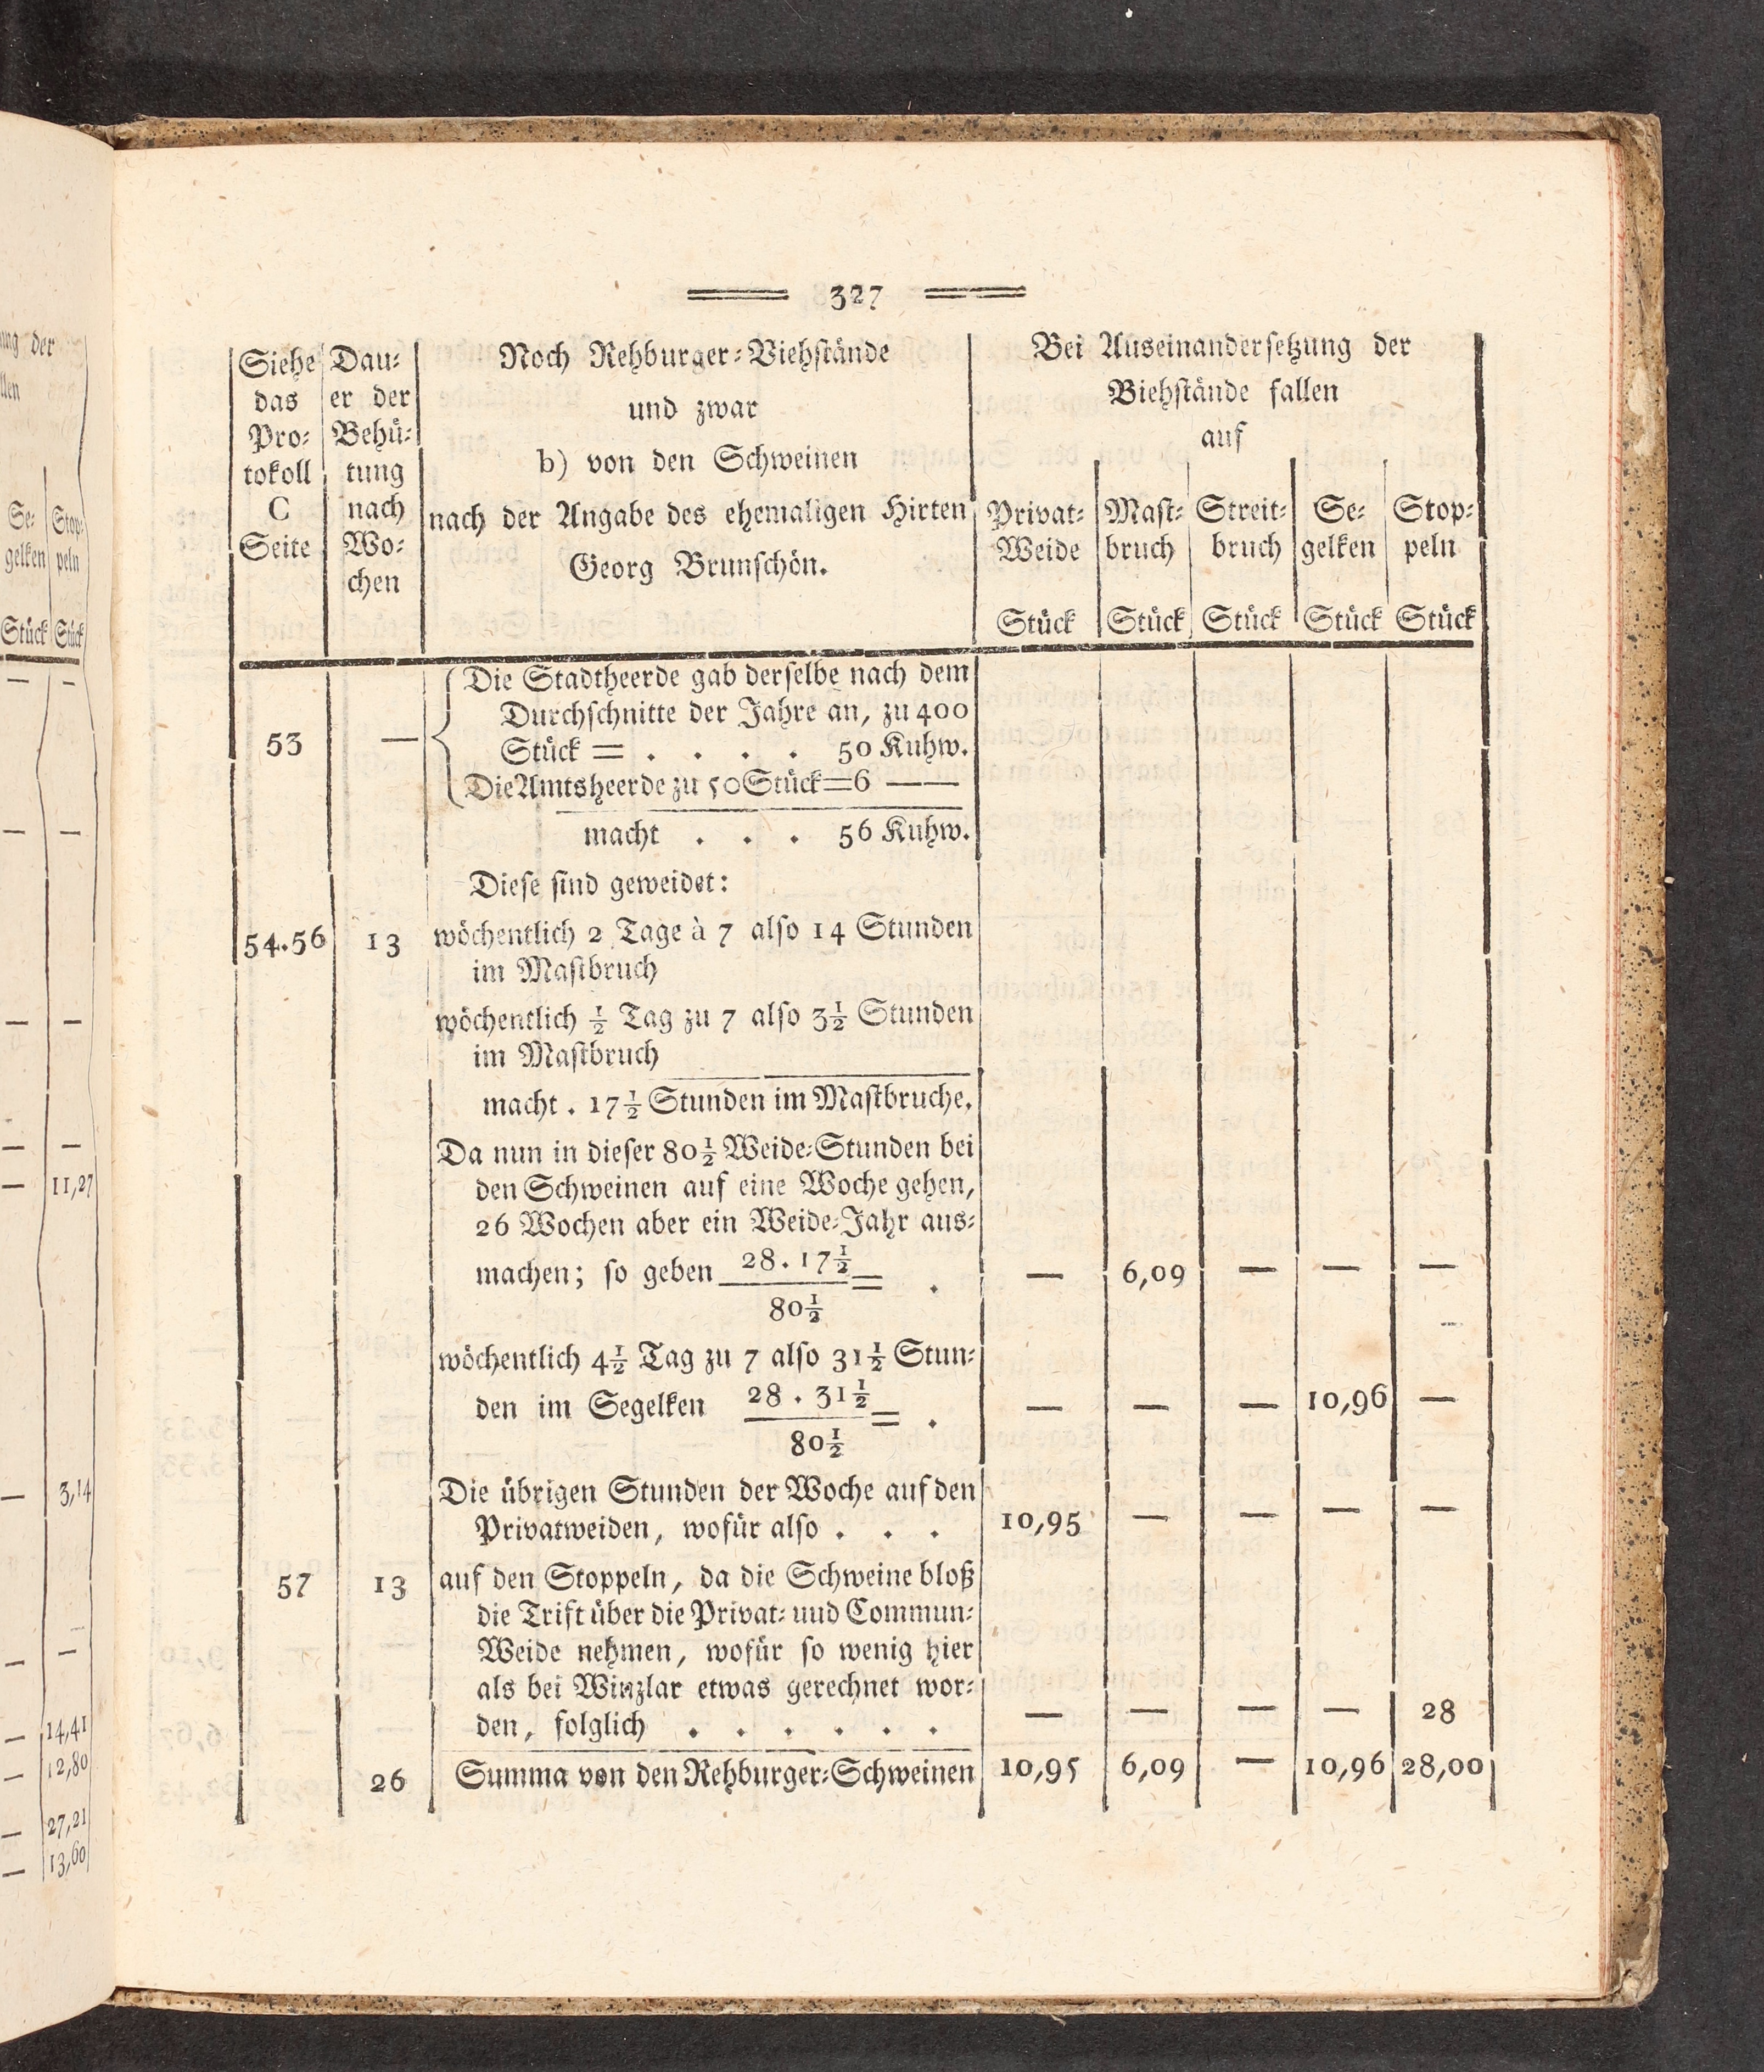 327
Siehe das Protokoll C Seite
Dauer der Behütung nach Wochen
Noch Rehburger-Viehstände
und zwar
b) von den Schweinen
nach der Angabe des ehemaligen Hirten
Georg Brunschön.
Bei Auseinandersetzung der
Viehstände fallen
auf
Privat-Weide Stück
Mast-bruch Stück
Streit-bruch Stück
Se-gelken Stück
Stop-peln Stück
Die Stadtheerde gab derselbe nach dem
Durchschnitte der Jahre an, zu 400
53 — Stück = . . . . 50 Kuhw.
Die Amtsheerde zu 50 Stück=6 — —
macht . . . 56 Kuhw.
Diese sind geweidet:
54.56 13 wöchentlich 2 Tage à 7 also 14 Stunden
im Mastbruch
wöchentlich ½ Tag zu 7 also 3½ Stunden
im Mastbruch
macht . 17½ Stunden im Mastbruche.
Da nun in dieser 80½ Weide-Stunden bei
den Schweinen auf eine Woche gehen,
26 Wochen aber ein Weide-Jahr aus-
machen; so geben 28 . 17½ = . — 6,09 — — —
80½
wöchentlich 4½ Tag zu 7 also 31½ Stun-
den im Segelken 28 . 31½ = . — — — 10,96 —
80½
Die übrigen Stunden der Woche auf den
Privatweiden, wofür also . . . 10,95 — — — —
57 13 auf den Stoppeln, da die Schweine bloß
die Trift über die Privat- und Commun-
Weide nehmen, wofür so wenig hier
als bei Winzlar etwas gerechnet wor-
den, folglich . . . . . . — — — — 28
26 Summa von den Rehburger-Schweinen 10,95 6,09 — 10,96 28,00
Se-gelken
Stop-peln
Stück Stück
— 11,27
— 3,14
— 14,41
— 12,80
— 27,21
— 13,60